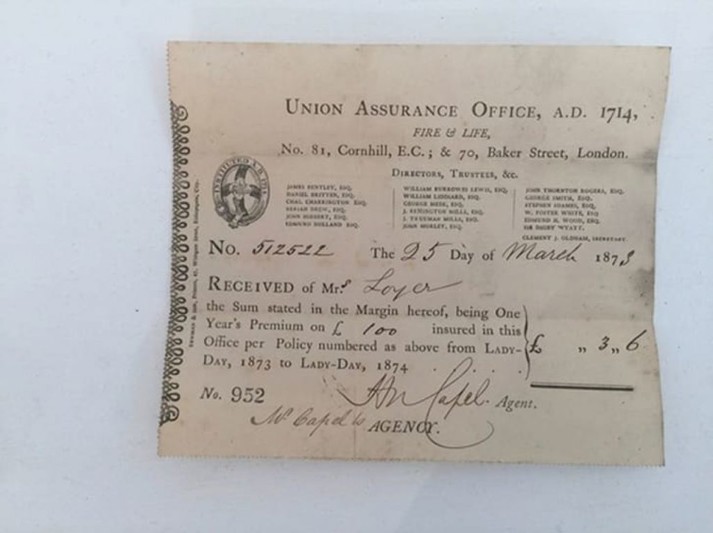 UNION ASSURANCE OFFICE, A.D. 1714,
FIRE & LIFE,
No. 81, Cornhill, E.C.; & 70, Baker Street, London.
DIRECTORS, TRUSTEES, &c.
JAMES BENTLEY, ESQ.
DANIEL BRITTEN, ESQ.
CHAS. CHARRINGTON, ESQ.
BERIAH DREW, ESQ.
JOHN HIBBERT, ESQ.
EDMUND HOLLAND ESQ.
WILLIAM BURROWES LEWIS, ESQ.
WILLIAM LIDDIARD, ESQ.
GEORGE MEEK, ESQ.
J. REMINGTON MILLS, ESQ.
J. TRUEMAN MILLS, ESQ.
JOHN MORLEY, ESQ.
JOHN THORNTON ROGERS, ESQ.
GEORGE SMITH, ESQ.
STEPHEN SOAMES, ESQ.
W. FOSTER WHITE, ESQ
EDMUND H. WOOD, ESQ.
SIR DIGBY WYATT.
CLEMENT J. OLDHAM, SECRETARY.
INSTITUTED A.D. 1714
No. 512522 The 25 Day of March 1873
RECEIVED of Mrs Loyer
the Sum stated in the Margin hereof, being One
Year's Premium on £ 100 insured in this
Office per Policy numbered as above from LADY-
DAY, 1873 to LADY-DAY, 1874
£ „ 3 „ 6
No. 952
Capel Agent.
Mr Capel's AGENCY.